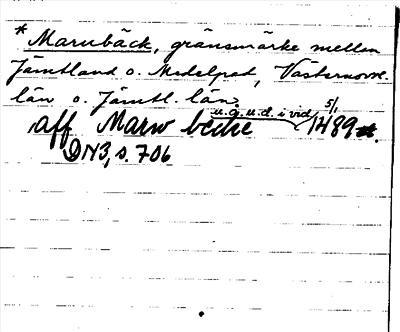 *Marubäck, gränsmärke mellan
Jämtland o. Medelpad, Västernorrl.
län o. Jämtl. län.
u.å.u.d. i vid. 5/1
aff Marw becke 1489
DN3, s. 706